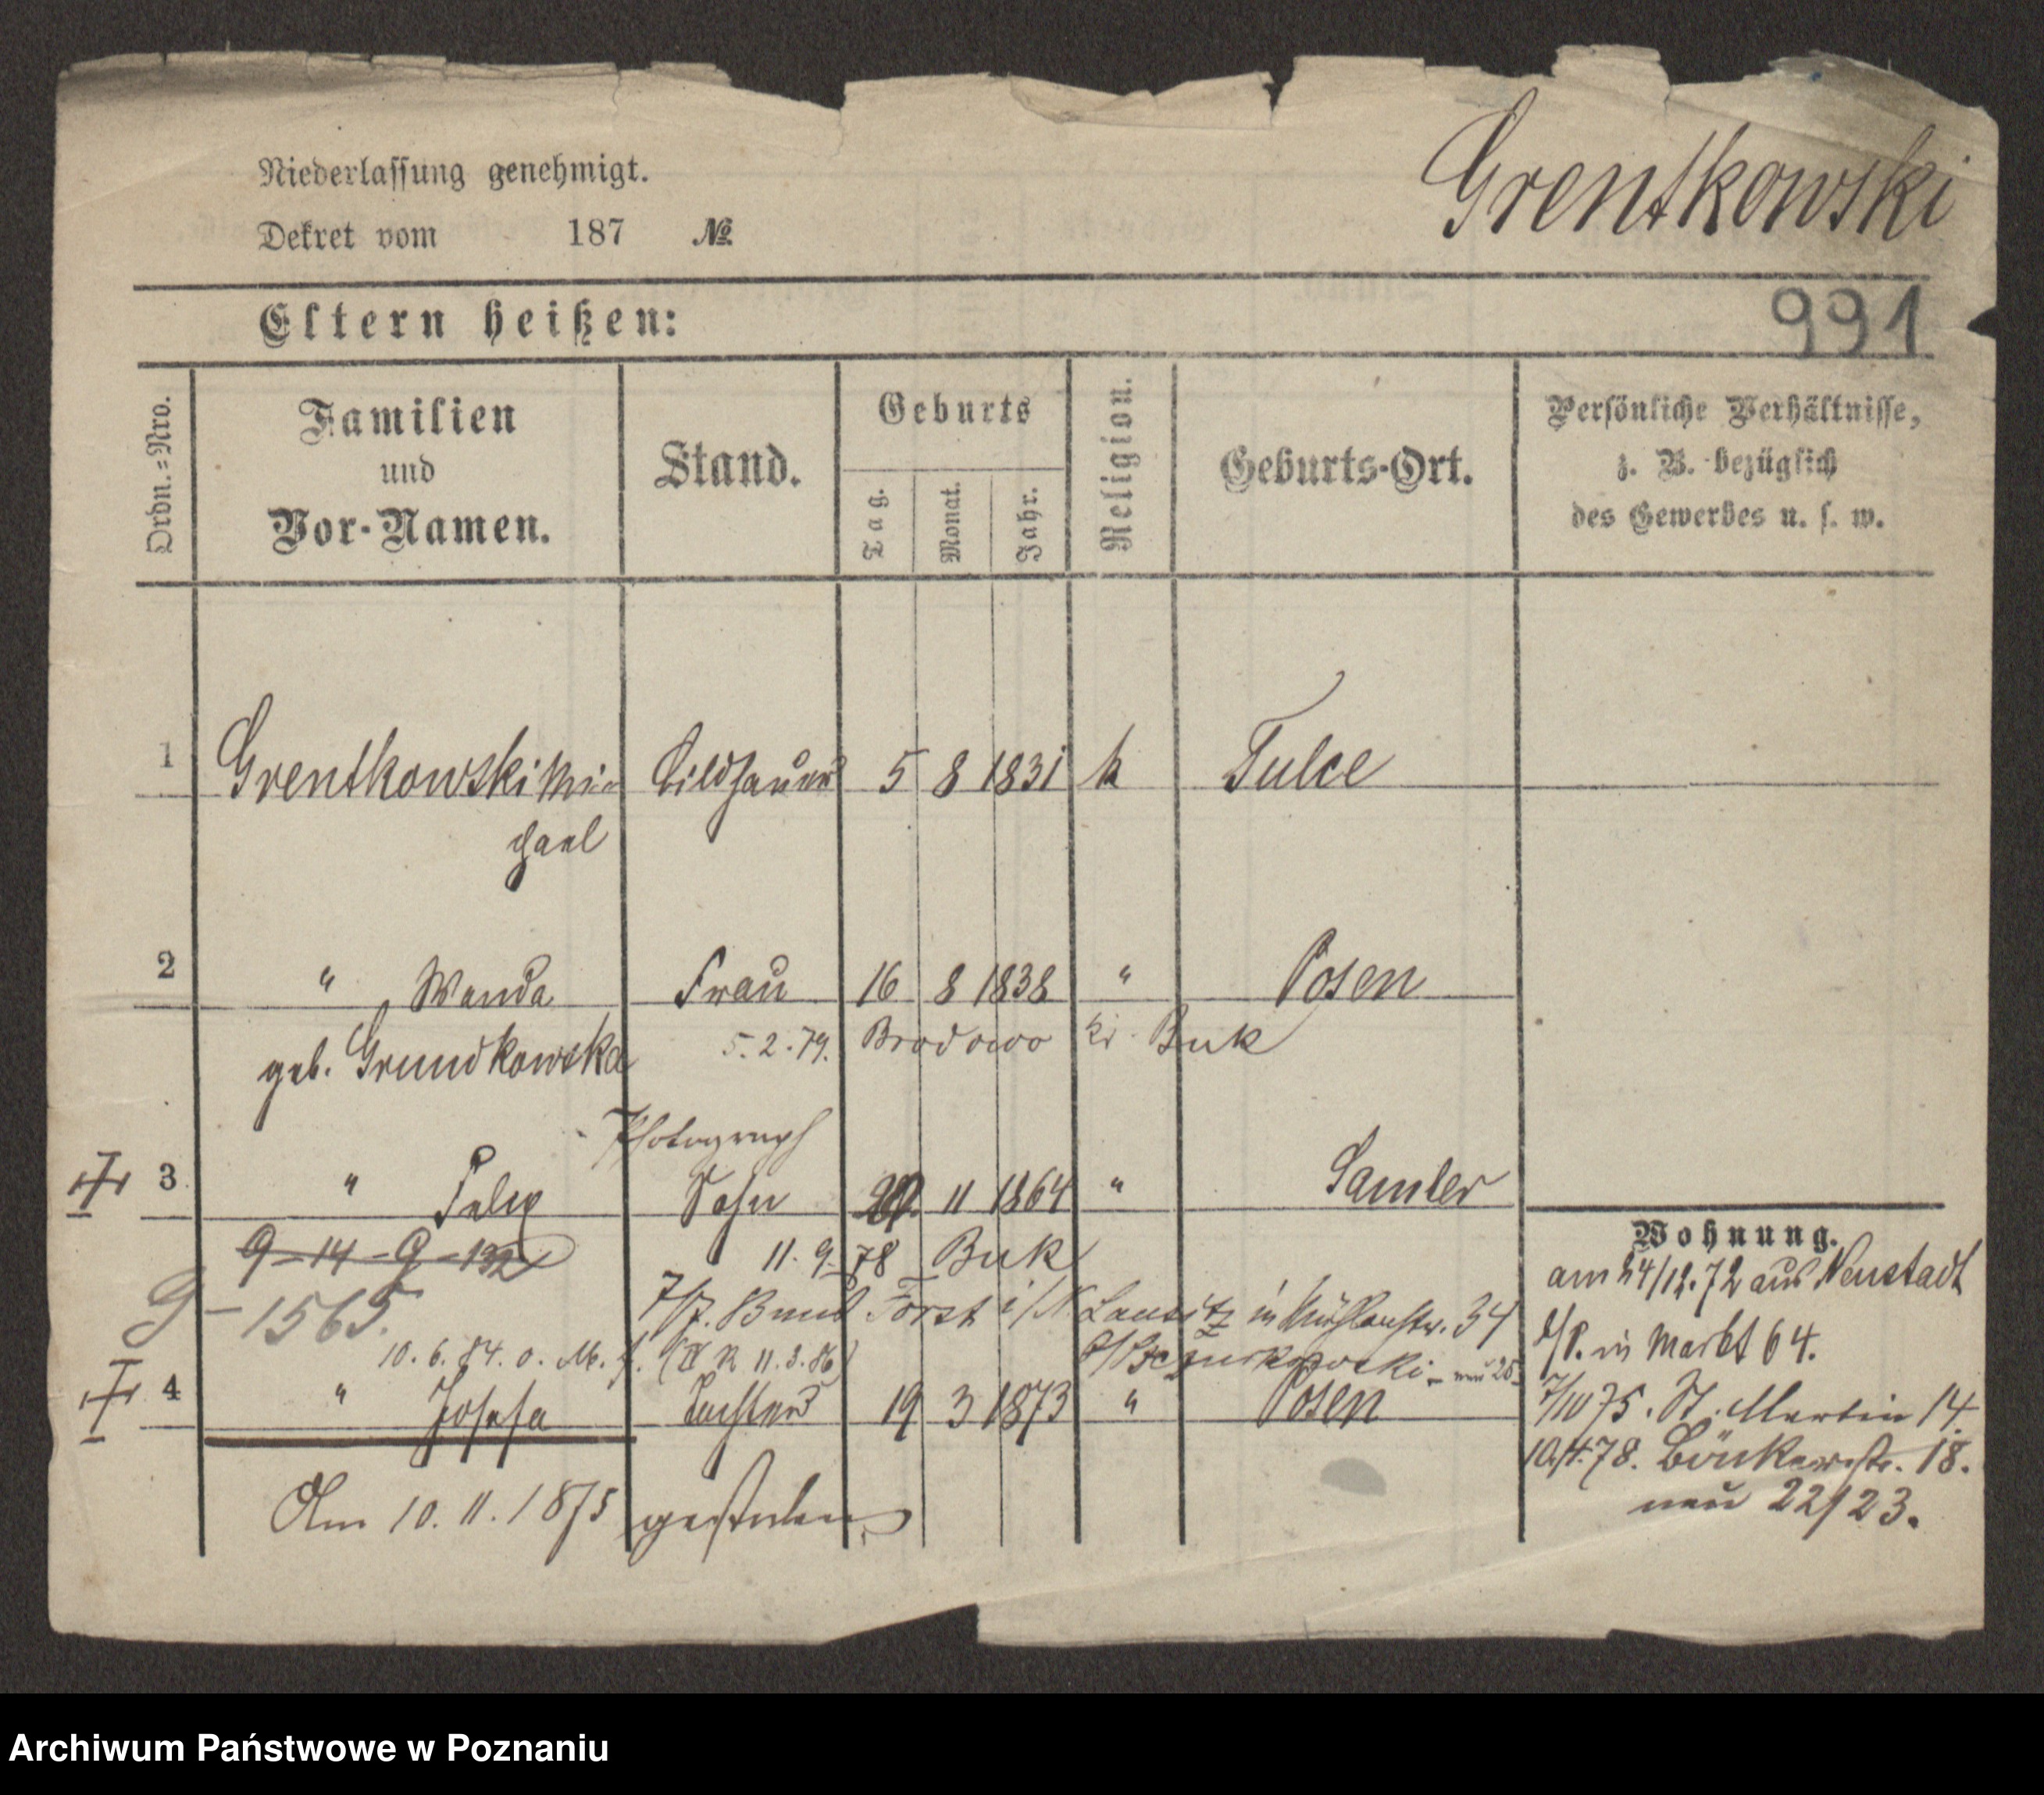 Niederlassung genehmigt.
Grentkowski
Dekret vom 187 №
Eltern heißen:
991
Ordn.=Nro.
Familien und Vor-Namen.
Stand.
Geburts
Tag.
Monat.
Jahr.
Religion.
Geburts-Ort.
Persönliche Verhältnisse,
z. B. bezüglich
des Gewerbes u. s. w.
1 Grentkowski Mi- Bildhauer 5 8 1831 k Tulce
chael
2 " Wanda Frau 16 8 1838 " Posen
geb. Grundkowska 5.2.79. Brodowo Kr. Buk
Photograph
3 " Felix Sohn 11 1864 " Samter
9-14-9-132 11.9.78 Buk
G-1565.
7/7. Forst i/N. Lausitz in Mühlenstr. 34
10.6.84. o. M. (IV R 11.3.86) neu 25
4 " Josefa Tochter 19 3 1873 " Posen
Am 10.11.1875 gestorben
Wohnung.
am 24/12.72 aus Neustadt
b/P. in Markt 64.
7/10 75. St. Martin 14.
10/4.78. Bäckerstr. 18.
neu 22/23.
Archiwum Państwowe w Poznaniu